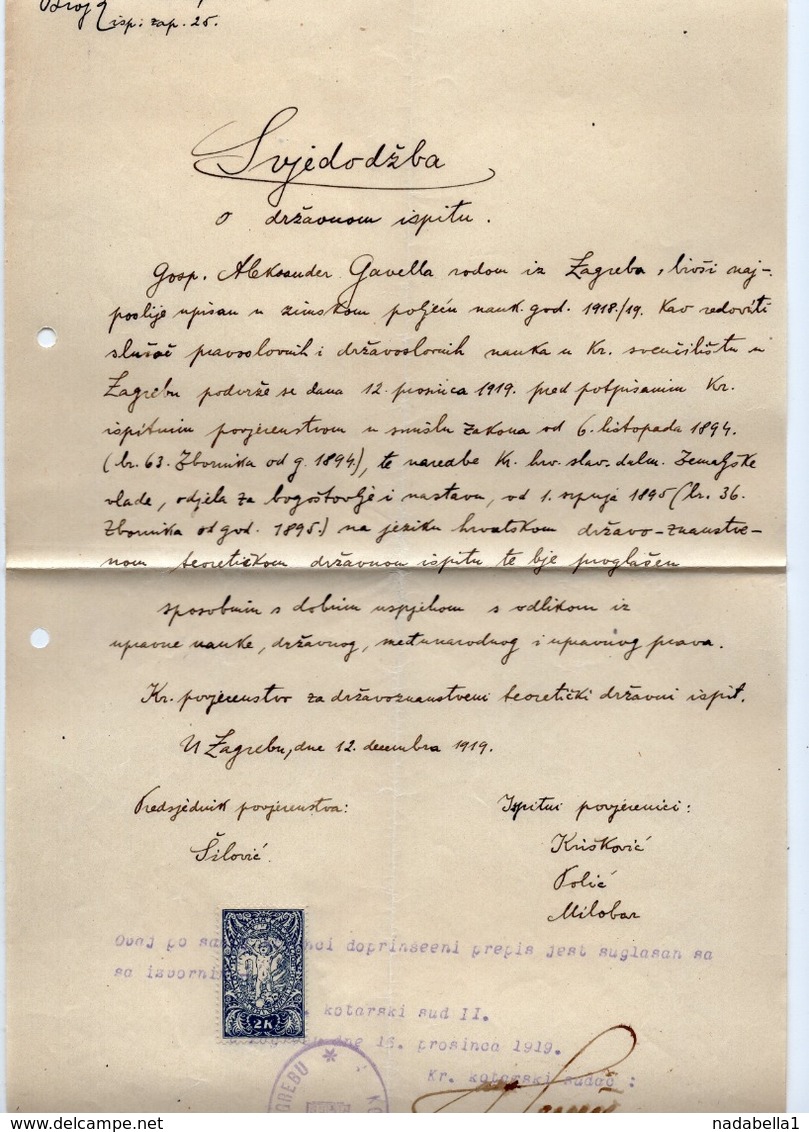 Broj 2
isp: zap. 25.
Svjedodžba
o državnom ispitu.
Gosp. Aleksander Gavella rodom iz Zagreba, bivši naj-
poslije upisan u zimskom poljeću nauk. god. 1918./19. kao redoviti
slušač pravoslovnih i državoslovnih nauka u kr. sveučilištu u
Zagrebu podvrže se dana 12. prosinca 1919. pred potpisanim kr.
ispitnim povjerenstvom u smislu zakona od 6. listopada 1894.
(br. 63. Zbornika od g. 1894.), te naredbe kr. hrv. slav. dalm. zemaljske
vlade, odjela za bogoštovlje i nastavu, od 1. srpnja 1895 (br. 36.
Zbornika od god. 1895.) na jeziku hrvatskom državo-znanstve-
nom teoretičkom državnom ispitu te bje proglašen
sposobnim s dobrim uspjehom s odlikom iz
upravne nauke, državnog, međunarodnog i upravnog prava.
Kr. povjerenstvo za državoznanstveni teoretički državni ispit.
U Zagrebu, dne 12. decembra 1919.
Predsjednik povjerenstva:
Šilović.
Ispitni povjerenici:
Krišković
Polić
Milobar
Ovaj po sa doprinseeni prepis jest suglasan sa
sa izvorni
2K
kotarski sud II.
dne 16. prosinca 1919.
Kr. kotarski sudac :
GREBU
nadabella1